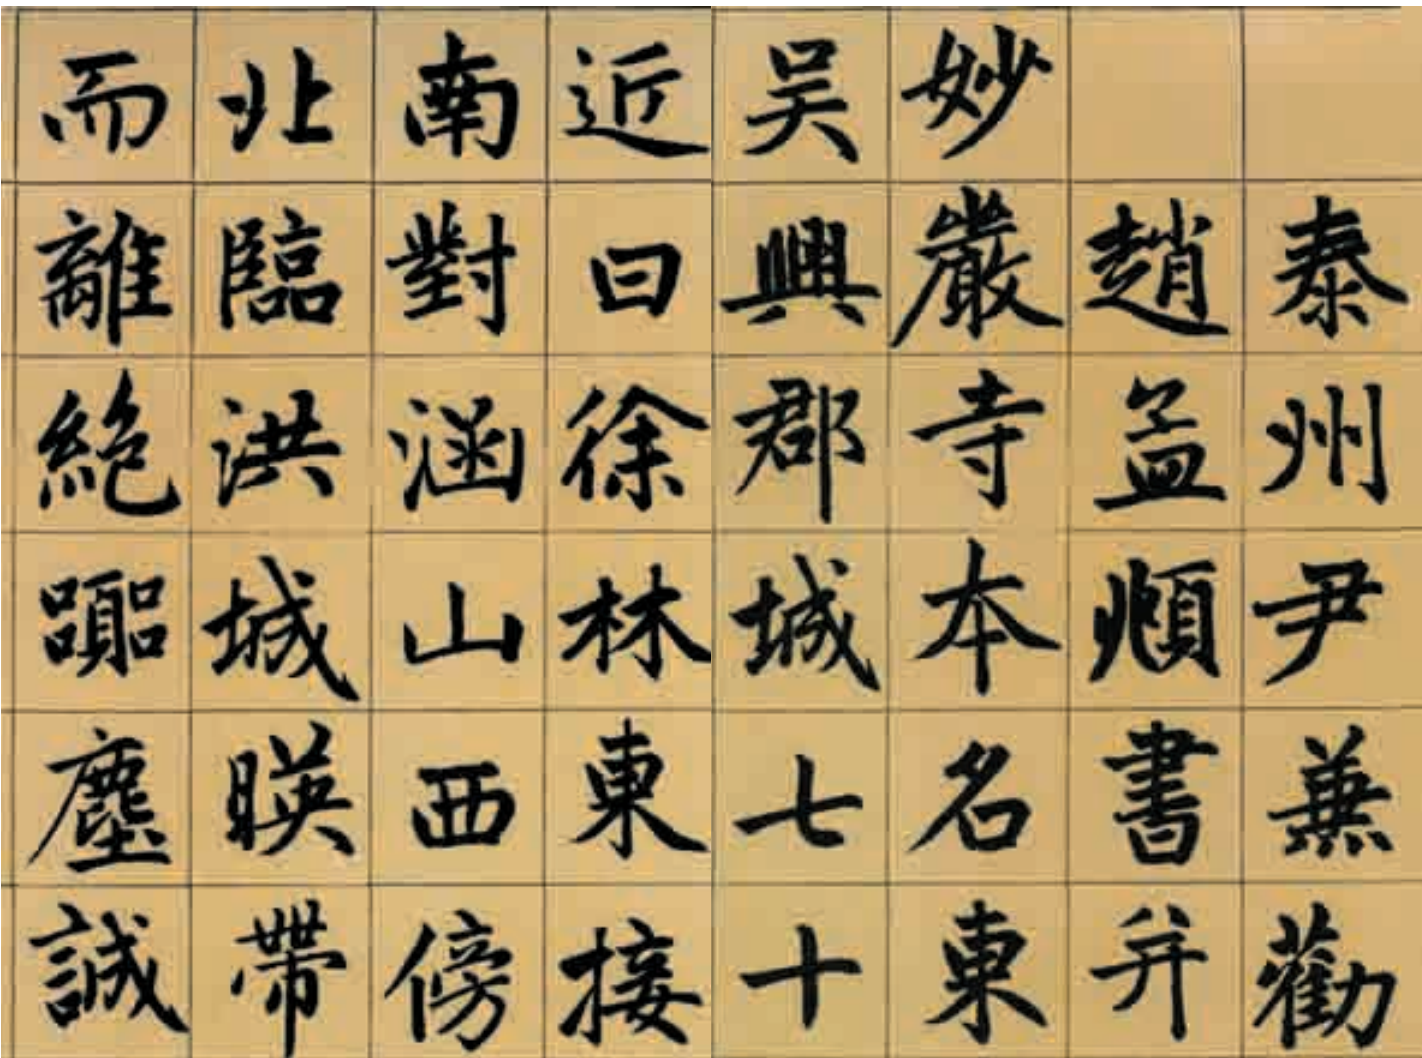 泰州尹兼勸
趙孟頫書并
妙嚴寺本名東
吴興郡城七十
近曰徐林東接
南對涵山西傍
北臨洪城暎帶
而離絕囂塵誠